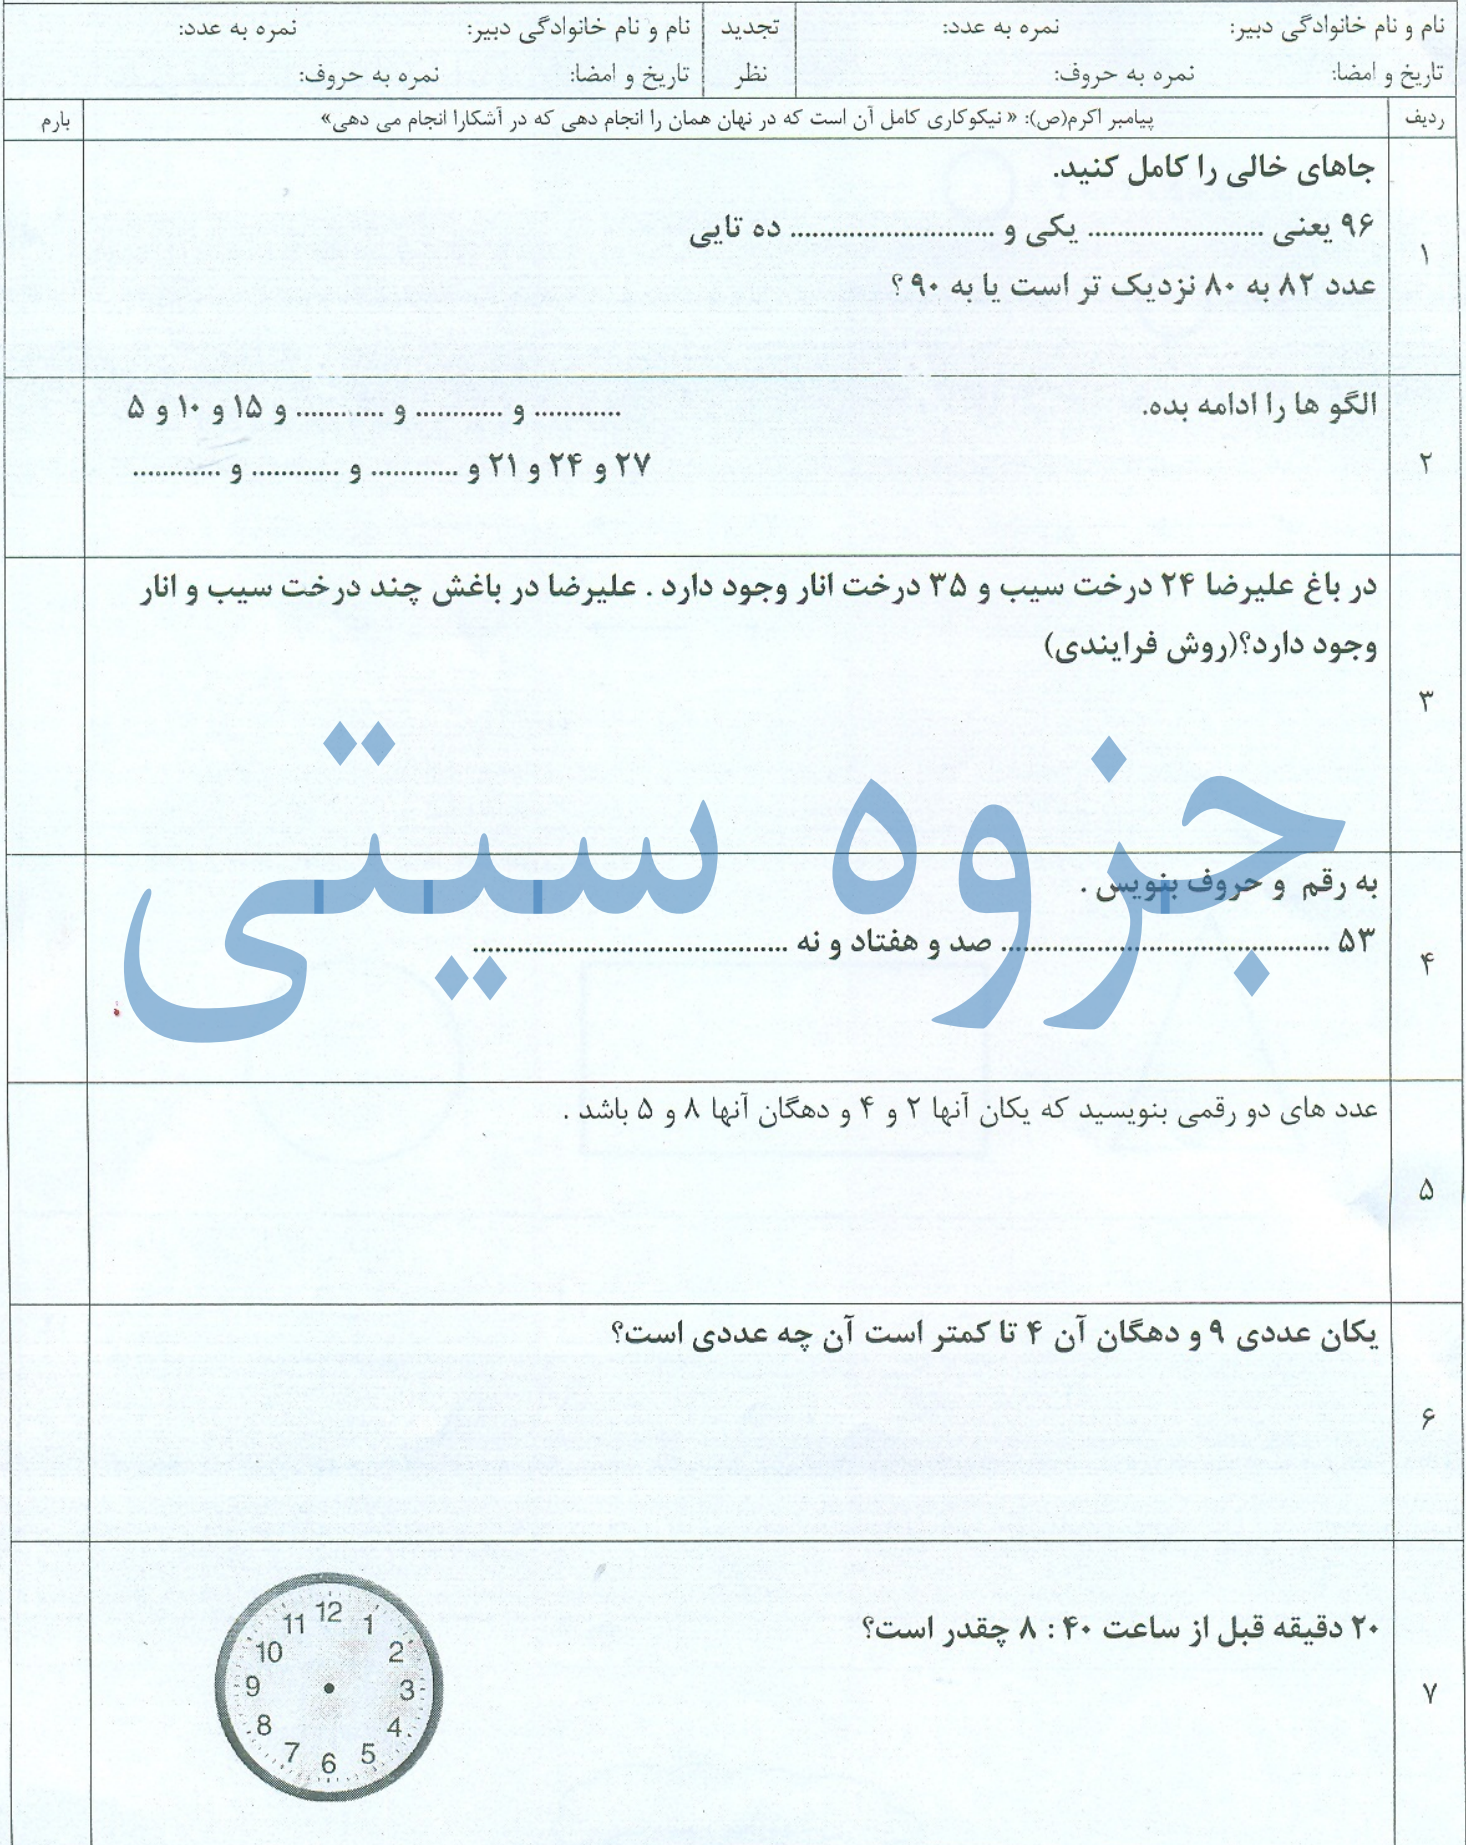 نام و نام خانوادگی دبیر: نمره به عدد: تجدید نام و نام خانوادگی دبیر: نمره به عدد:
تاریخ و امضا: نمره به حروف: نظر تاریخ و امضا: نمره به حروف:
ردیف پیامبر اکرم(ص): « نیکوکاری کامل آن است که در نهان همان را انجام دهی که در آشکارا انجام می دهی» بارم
جاهای خالی را کامل کنید.
۹۶ یعنی ........................ یکی و ............................ ده تایی
۱
عدد ۸۲ به ۸۰ نزدیک تر است یا به ۹۰ ؟
الگو ها را ادامه بده.
۵ و ۱۰ و ۱۵ و ............ و ............ و ............
۲
۲۷ و ۲۴ و ۲۱ و ............ و ............ و ............
در باغ علیرضا ۲۴ درخت سیب و ۳۵ درخت انار وجود دارد . علیرضا در باغش چند درخت سیب و انار
وجود دارد؟(روش فرایندی)
۳
جزوه سیتی
به رقم و حروف بنویس .
۵۳ ............................................. صد و هفتاد و نه ...........................................
۴
عدد های دو رقمی بنویسید که یکان آنها ۲ و ۴ و دهگان آنها ۸ و ۵ باشد .
۵
یکان عددی ۹ و دهگان آن ۴ تا کمتر است آن چه عددی است؟
۶
۲۰ دقیقه قبل از ساعت ۴۰ : ۸ چقدر است؟
۷
12
1
2
3
4
5
6
7
8
9
10
11